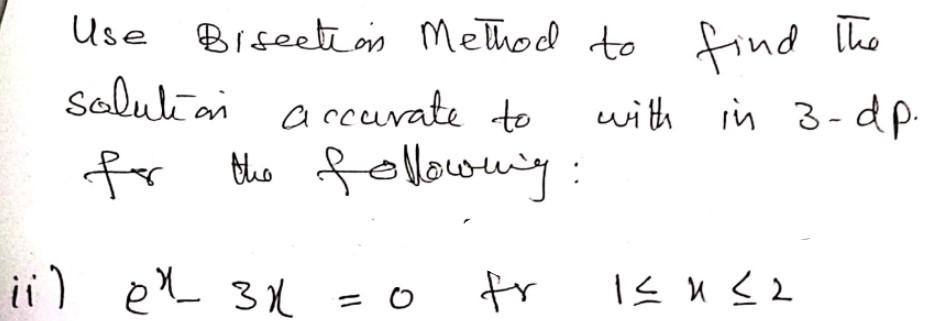 Use Bisection Method to find the
solution accurate to with in 3-dp.
for the following:
ii) e^x - 3x = 0 fr 1 ≤ x ≤ 2